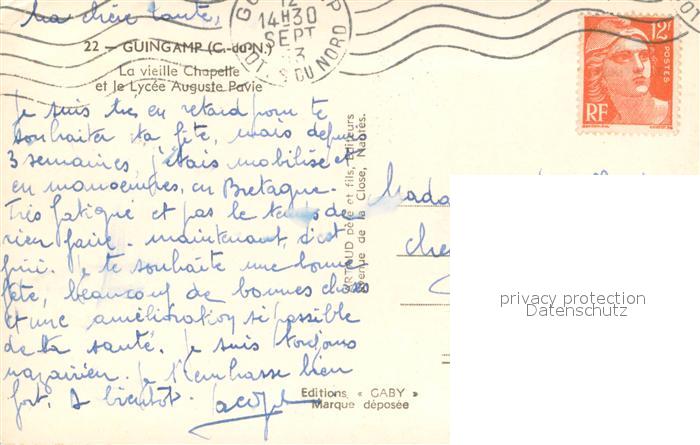 Ma chère tante,
GU P
12
14H30
SEPT
53
DU NORD
22 — GUINGAMP (C.-du-N.)
La vieille Chapelle
et le Lycée Auguste Pavie
Je suis très en retard pour te
souhaiter ta fête, mais depuis
3 semaines, j'étais mobilisé et
en manoeuvres, en Bretagne.
Très fatigué et pas le temps de
rien faire. maintenant c'est
fini. Je te souhaite une bonne
fête, beaucoup de bonnes choses
et une amélioration si possible
de ta santé. Je suis toujours
nazairien. Je t'embrasse bien
fort. A bientôt.
ARTAUD père et fils, Editeurs
Avenue de la Close, Nantes.
Editions "GABY"
Marque déposée
12F
POSTES
RF
Mada
che
privacy protection
Datenschutz